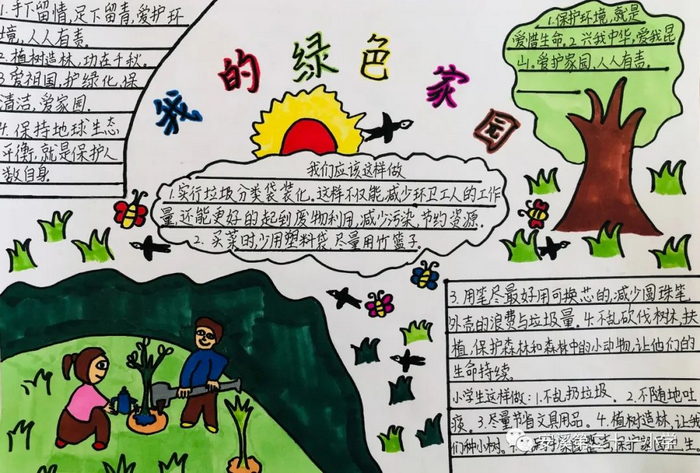 我的绿色家园
1.手下留情,足下留青,爱护环
境,人人有责.
2.植树造林,功在千秋.
3.爱祖国,护绿化,保
清洁,爱家园.
4.保持地球生态
平衡,就是保护人
数自身.
1.保护环境,就是
爱惜生命.2.兴我中华,爱我昆
山.爱护家园,人人有责.
我们应该这样做
1.实行垃圾分类袋装化.这样不仅能减少环卫工人的工作
量,还能更好的起到废物利用,减少污染,节约资源.
2.买菜时,少用塑料袋,尽量用竹篮子
3.用笔尽最好用可换芯的,减少圆珠笔
外壳的浪费与垃圾量.4.不乱砍伐树林,扶
植,保护森林和森林中的小动物,让他们的
生命持续.
小学生这样做:1.不乱扔垃圾. 2.不随地吐
痰.3.尽量节省文具用品.4.植树造林,让我
们种小树.